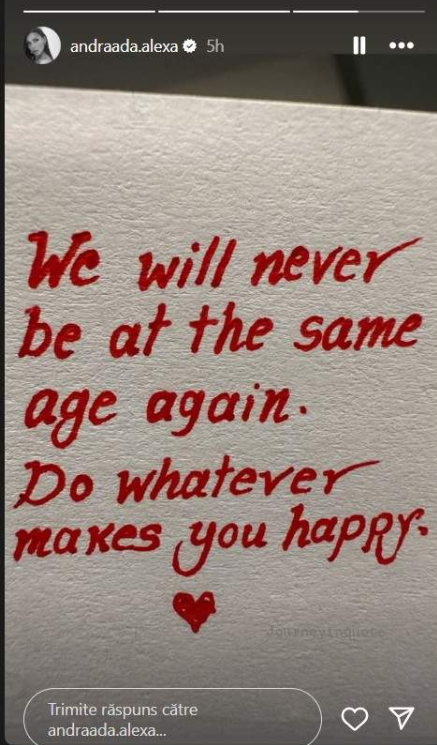 andraada.alexa 5h
We will never
be at the same
age again.
Do whatever
makes you happy.
Journeyinquote
Trimite răspuns către
andraada.alexa...